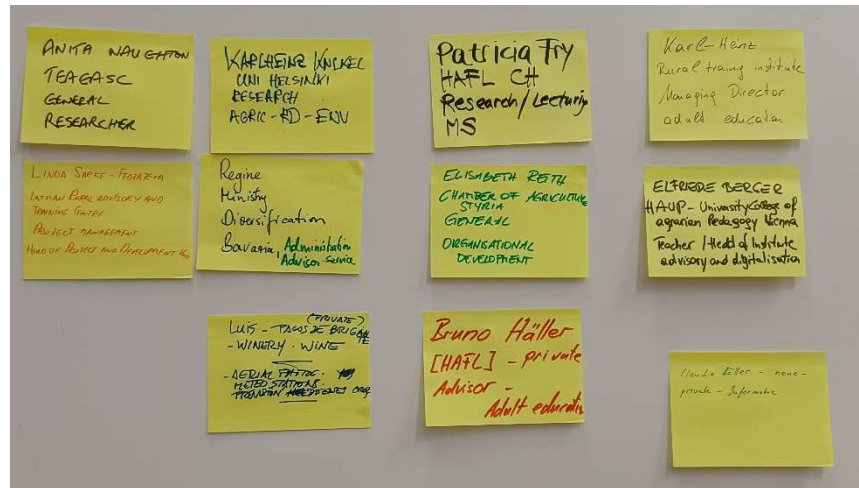 ANITA NAUGHTON
TEAGASC
GENERAL
RESEARCHER
KARLHEINZ KNICKEL
UNI HELSINKI
RESEARCH
AGRIC-RD-ENV
Patricia Fry
HAFL CH
Research/Lecturing
MS
Karl-Heinz
Rural traing institute
Managing Director
adult education
LINDA
LATVIAN RURAL ADVISORY AND
TRAINING CENTRE
PROJECT MANAGEMENT
HEAD OF PROJECT AND DEVELOPMENT
Regine
Ministry
Diversification
Bavaria, Administration
Advisor service
ELISABETH REITH
CHAMBER OF AGRICULTURE
STYRIA
GENERAL
ORGANISATIONAL
DEVELOPMENT
ELFRIEDE BERGER
HAUP - University College of
agrarian Pedagogy Vienna
Teacher / Head of Institute
advisory and digitalisation
(PRIVATE)
LUIS - PAGOS DE
- WINERY · WINE
- AERIAL
METEO STATIONS.
Bruno Häller
[HAFL] - private
Advisor -
Adult education
Claudia Häller - none -
private - Informatic